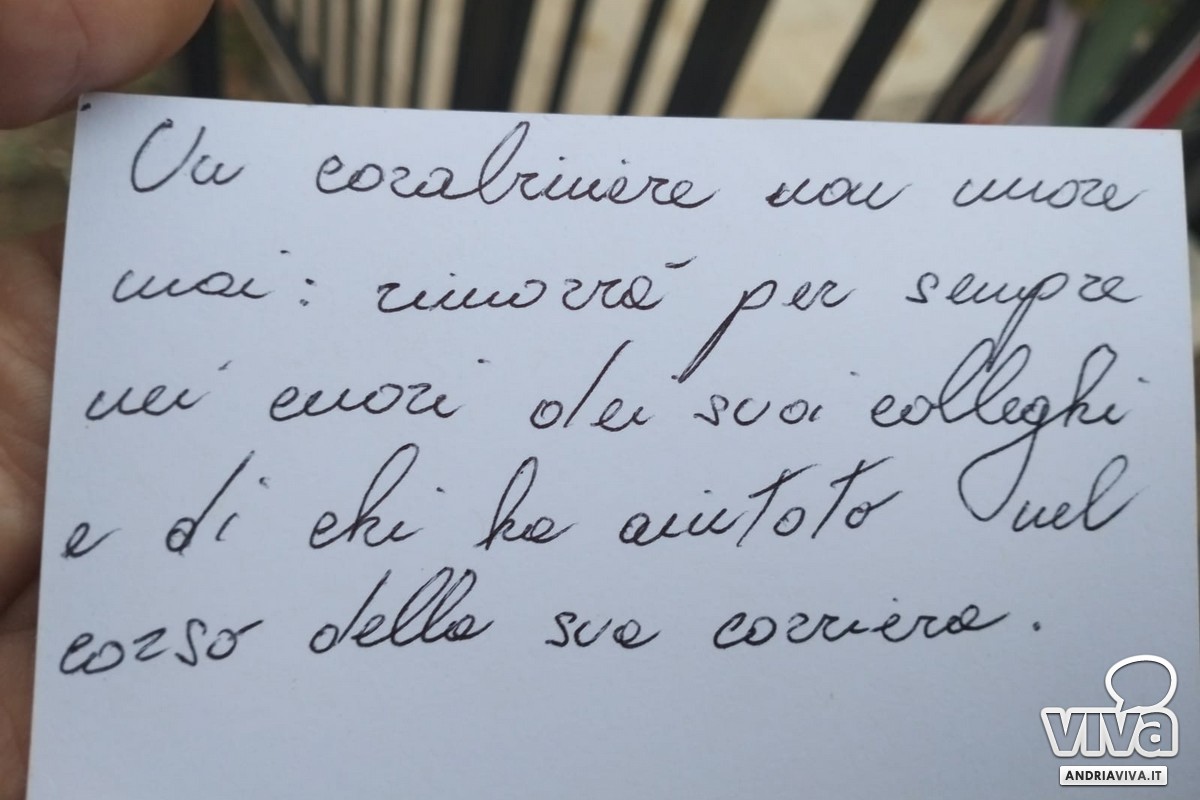 Un carabiniere non muore
mai: rimarrà per sempre
nei cuori dei suoi colleghi
e di chi ha aiutato nel
corso della sua carriera.
VIVA
ANDRIAVIVA.IT